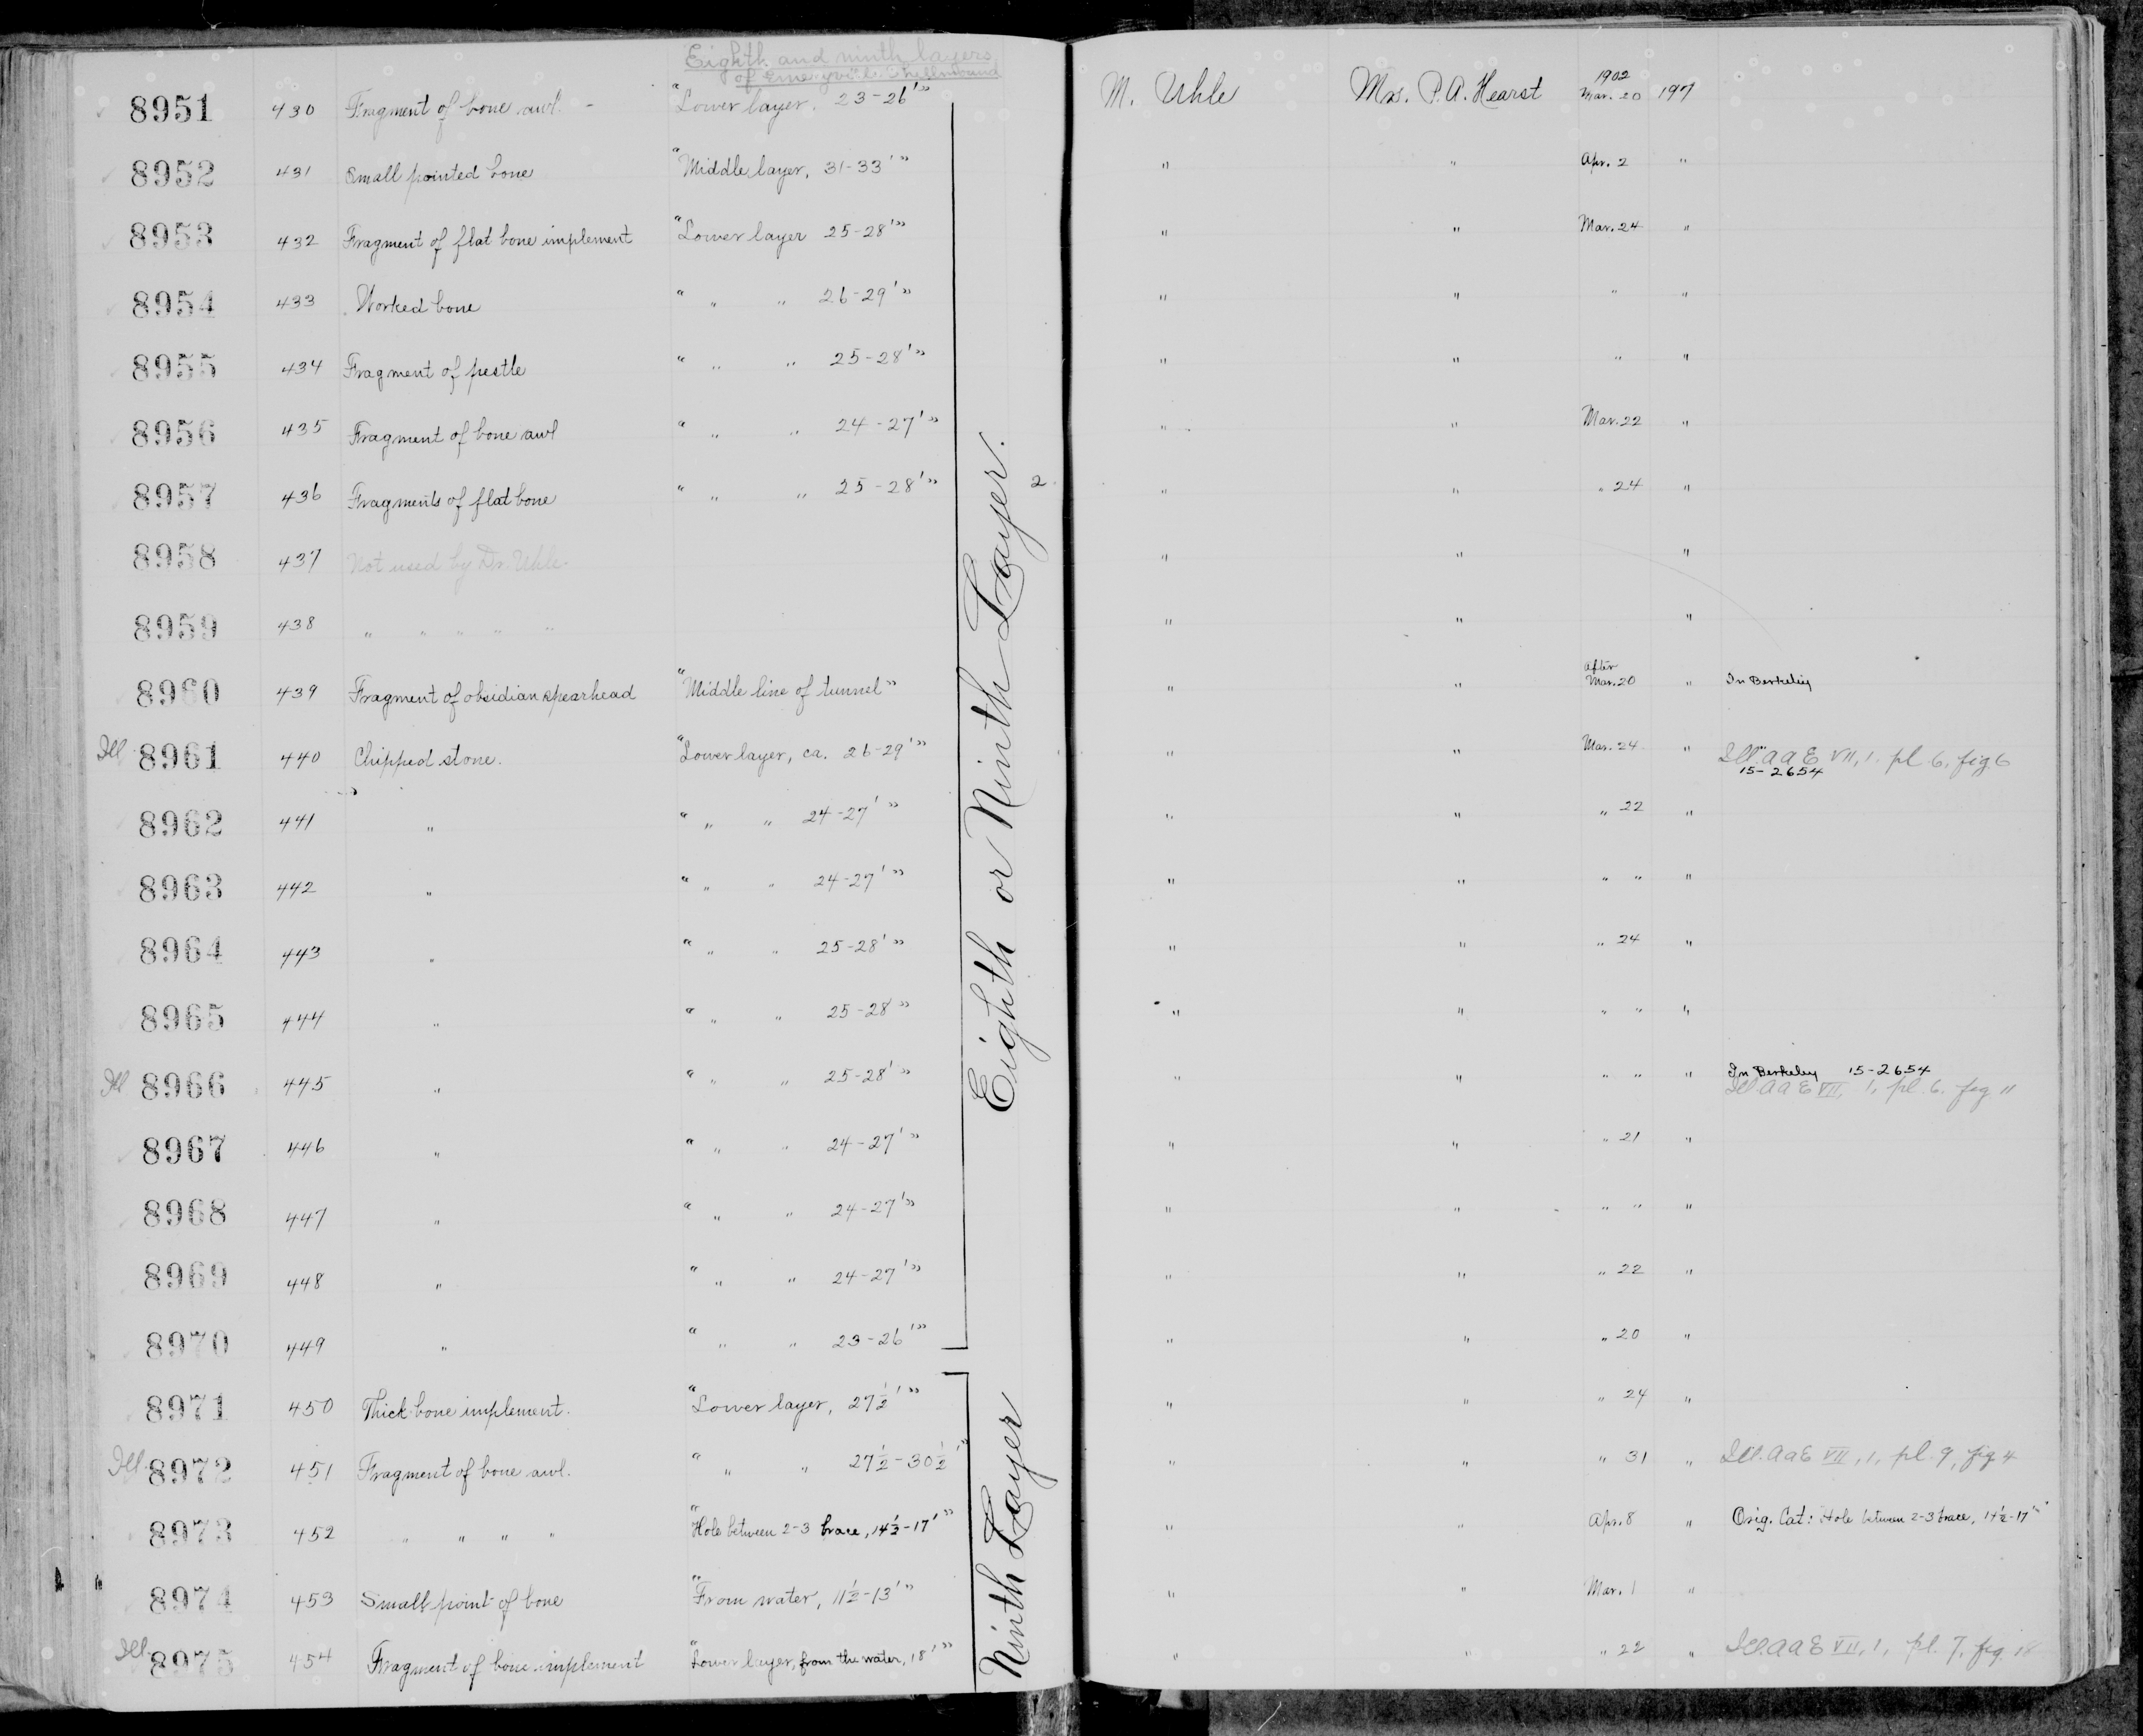 Eighth and ninth layers
of Emeryville Shellmound
8951 430 Fragment of bone awl. - "Lower layer, 23-26'" M. Uhle Mrs. P. A. Hearst 1902 Mar. 20 197
8952 431 Small pointed bone "Middle layer, 31-33'" " " Apr. 2 "
8953 432 Fragment of flat bone implement "Lower layer 25-28'" " " Mar. 24 "
8954 433 Worked bone " " " 26-29'" " " " "
8955 434 Fragment of pestle " " " 25-28'" " " " "
8956 435 Fragment of bone awl " " " 24-27'" " " Mar. 22 "
8957 436 Fragments of flat bone " " " 25-28'" 2 " " " 24 "
8958 437 Not used by Dr. Uhle. " " "
8959 438 " " " " " " " "
8960 439 Fragment of obsidian spearhead "Middle line of tunnel" " " After Mar. 20 " In Berkeley
Ill 8961 440 Chipped stone. "Lower layer, ca. 26-29'" " " Mar. 24 " Ill. A A E VII, 1. pl. 6, fig. 6
15-2654
8962 441 " " " " 24-27'" " " " 22 "
8963 442 " " " " 24-27'" " " " " "
8964 443 " " " " 25-28'" " " " 24 "
8965 444 " " " " 25-28" " " " " "
Ill 8966 445 " " " " 25-28'" " " " " " In Berkeley 15-2654
Ill. A A E VII, 1, pl. 6. fig. 11
8967 446 " " " " 24-27'" " " " 21 "
8968 447 " " " " 24-27'" " " " " "
8969 448 " " " " 24-27'" " " " 22 "
8970 449 " " " " 23-26'" " " " 20 "
Eighth or Ninth Layer.
8971 450 Thick bone implement. "Lower layer, 27½'" " " " 24 "
Ill. 8972 451 Fragment of bone awl. " " " 27½-30½'" " " " 31 " Ill. A A E VII, 1, pl. 9, fig. 4
8973 452 " " " " "Hole between 2-3 brace, 14½-17'" " " Apr. 8 " Orig. Cat: Hole between 2-3 brace, 14½-17'"
8974 453 Small point of bone "From water, 11½-13'" " " Mar. 1 "
Ill. 8975 454 Fragment of bone implement "Lower layer, from the water, 18'" " " " 22 " Ill. A A E VII, 1, pl. 7, fig. 18
Ninth Layer